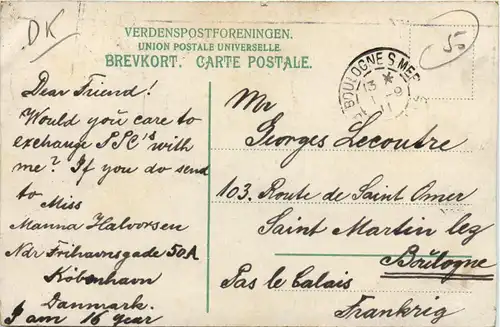 DK
VERDENSPOSTFORENINGEN.
UNION POSTALE UNIVERSELLE.
BREVKORT. CARTE POSTALE.
5
BOULOGNE S MER
13 *
1 - 9
11
Dear Friend!
Would you care to
exchange PPC's with
me? If you do send
to
Miss
Manna Halvorsen
Ndr Frihavnsgade 50A
København
Danmark.
I am 16 year
Mr
Georges Lecoutre
103. Route de Saint Omer
Saint Martin lez
Boulogne
Pas le Calais
Frankrig